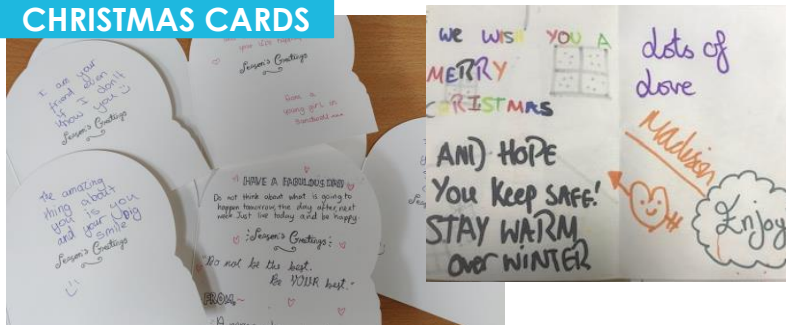 CHRISTMAS CARDS
I am your
friend even
if I don't
know you
Season's Greetings
Season's Greetings
from a
young girl in
The amazing
thing about
you is you
and your big
smile
Season's Greetings
HAVE A FABULOUS
Do not think about what is going to
happen tomorrow, the day after, next
week Just live today and be happy.
Season's Greetings
"Do not be the best.
Be YOUR best."
FROM
We WISH YOU A
MERRY
CHRISTMAS
AND HOPE
You Keep SAFE!
STAY WARM
over WINTER
Lots of
Love
Madison
Enjoy